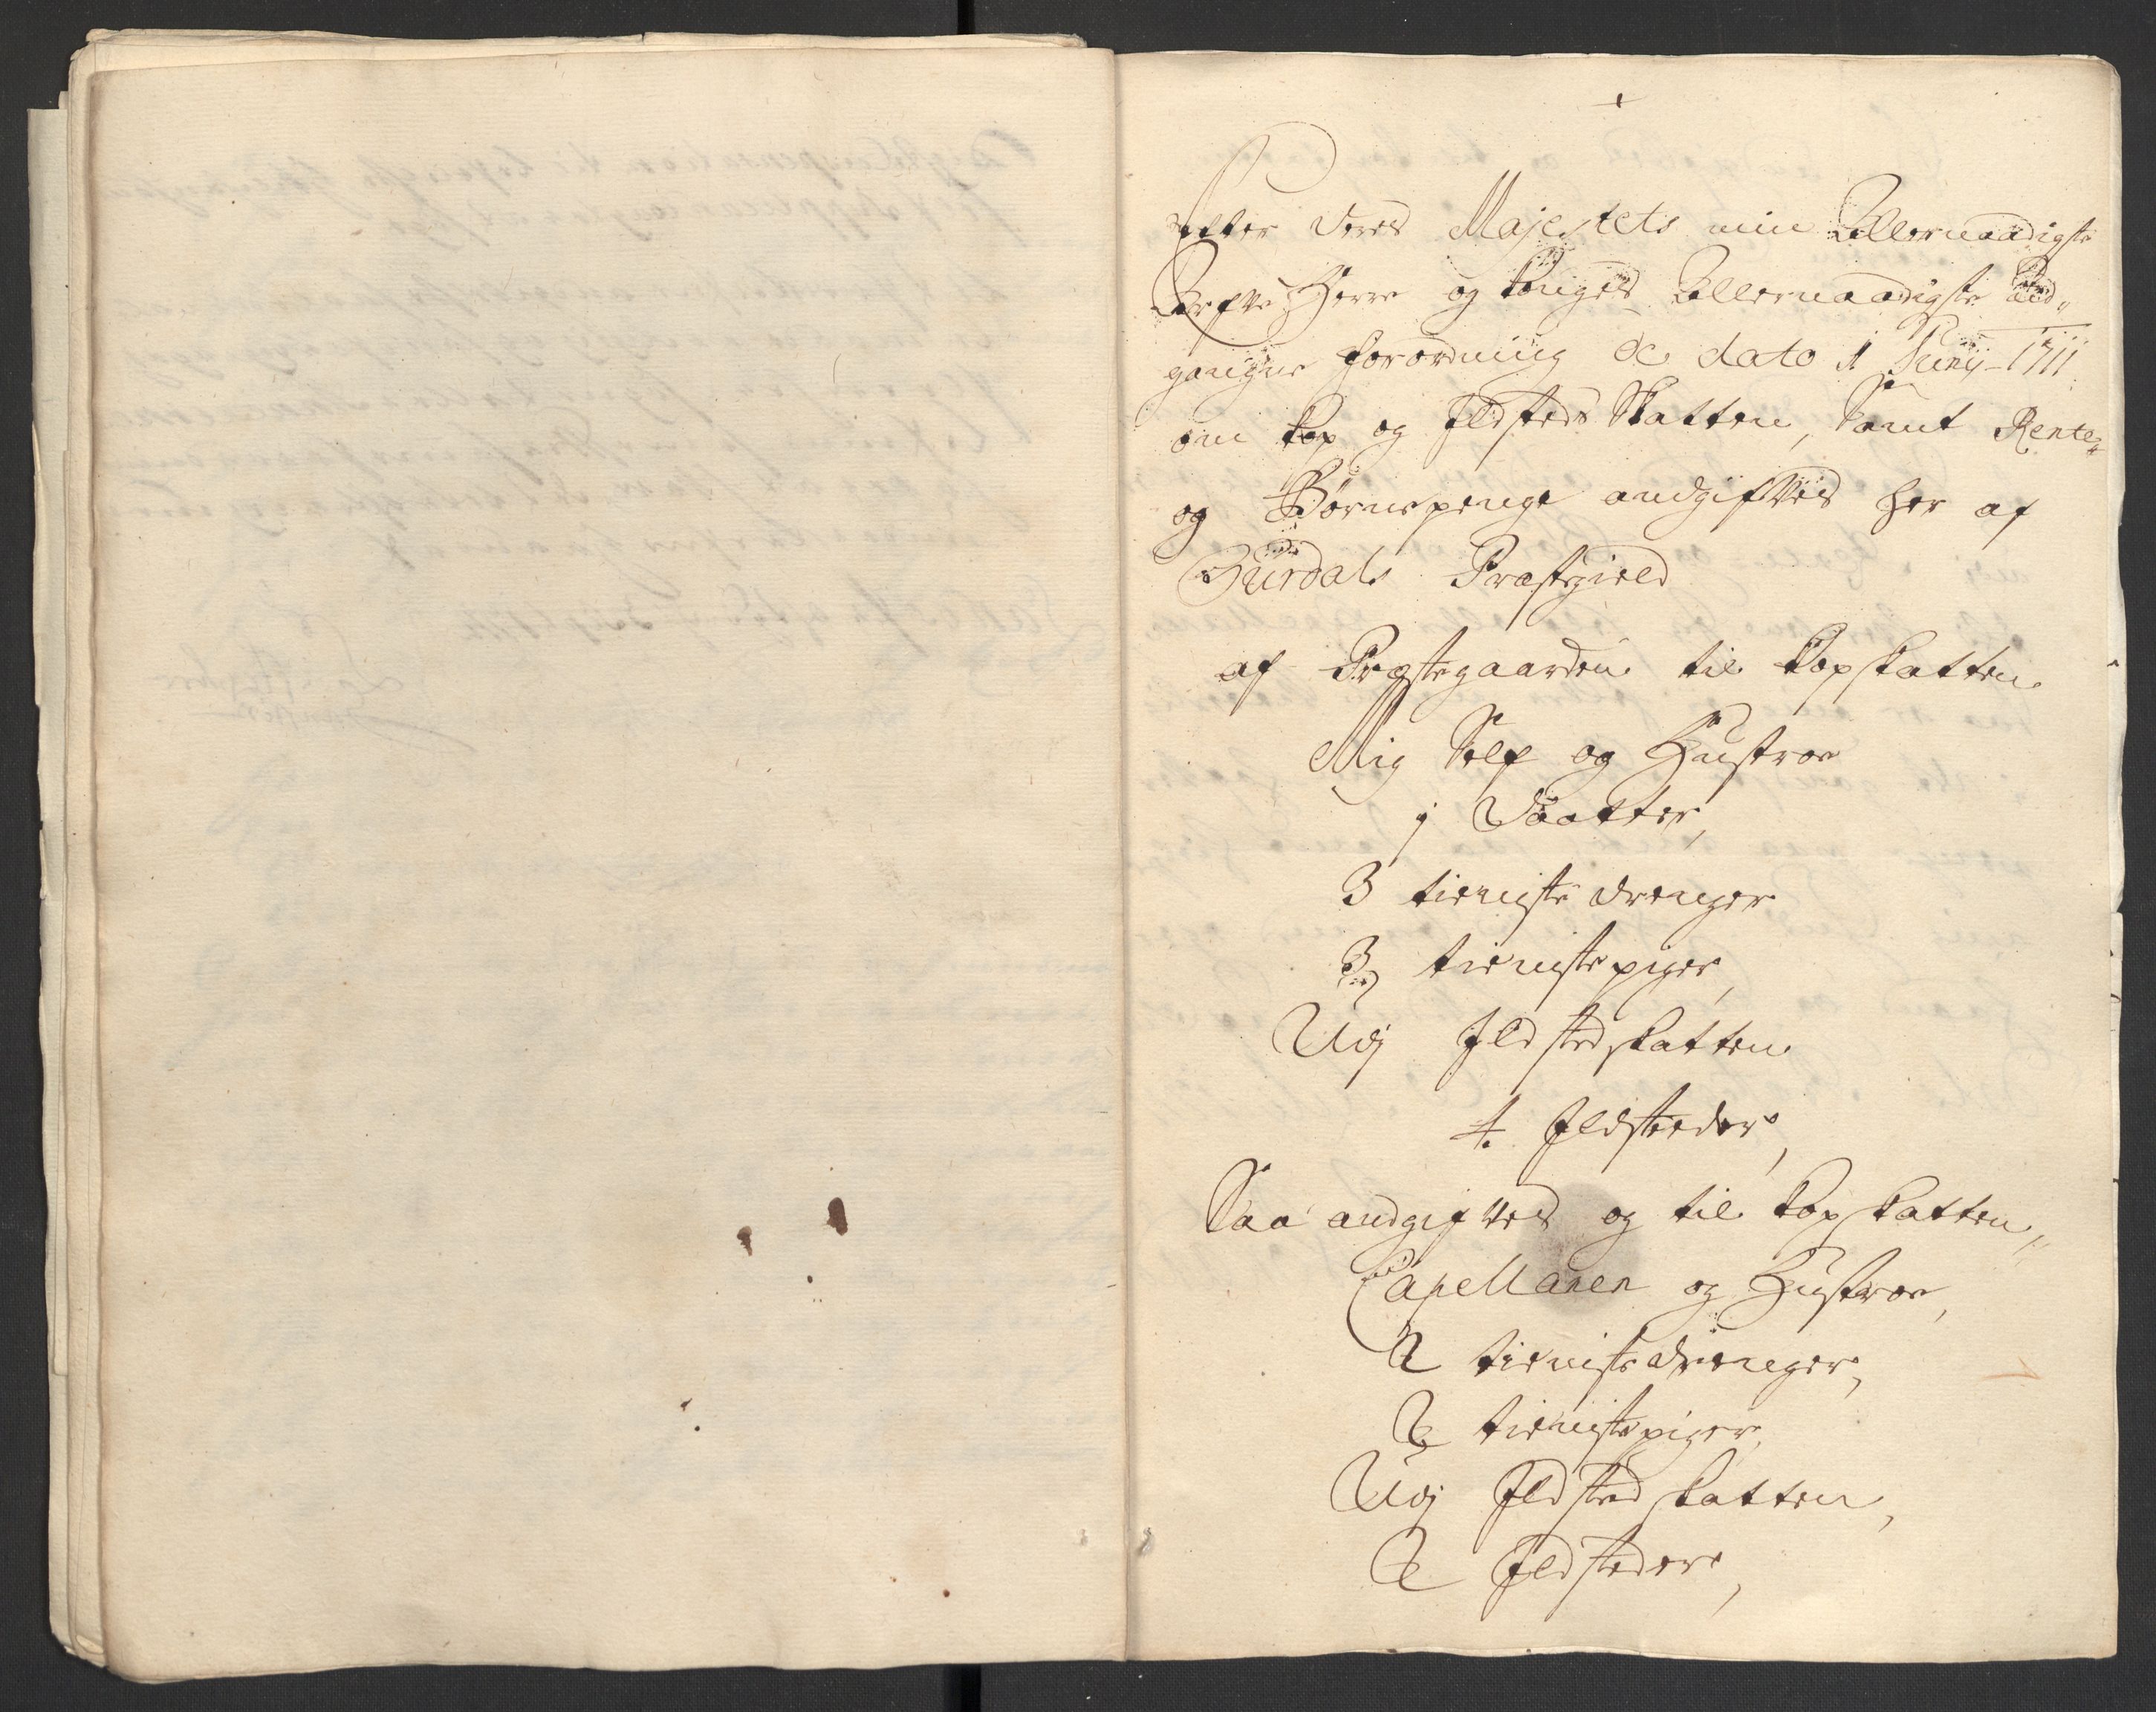 Efter Deres Majestets min Allernaadigste
Arfve Herre og Konges Allernaadigste ud„
gangne forordning de dato 1 Junij 1711
om kop og Ildsteds Skatten, samt Rente„
og Børnepenge andgifves her af
Surdals Præstegield
af Præstegaarden til kopskatten
Mig Self og Hustroe
j Daatter,
3 tieniste drenger
3 tieniste piger,
Udj Ildstedskatten
4. Ildsteeder,
Saa andgifves og til kopskatten,
Capellanen og Hustroe,
2 tieniste drenger,
2 tieniste piger,
Udj Ildsted skatten,
2 Ildsteder,